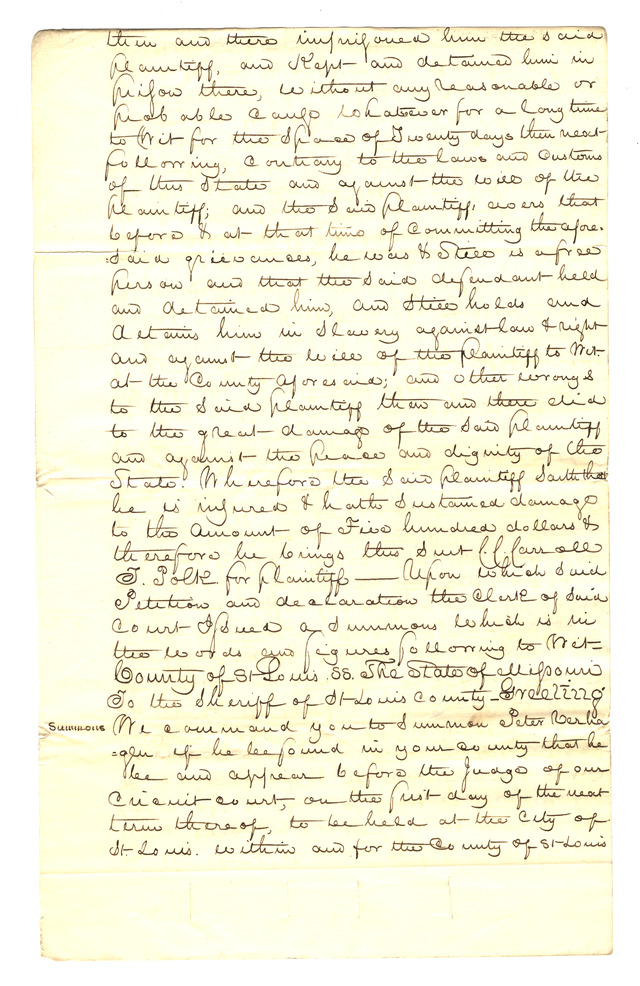 then and there imprisoned him the said
plaintiff, and Kept and detained him in
prison there, without any reasonable or
probable cause whatever for a long time
to Wit for the Space of Twenty days then next
following, contrary to the laws and Customs
of this State and against the will of the
plaintiff; and the Said plaintiff, avers that
before & at that time of Committing the afore-
:Said grievances, he was & Still is a free
person and that the Said defendant held
and detained him, and Still holds and
detains him in Slavery against law & right
and against the will of the plaintiff to Wit-
at the County aforesaid; and other wrongs
to the Said plaintiff then and there did
to the great damage of the Said plaintiff
and against the peace and dignity of the
State. Wherefore the Said plaintiff Saith that
he is injured & hath Sustained damage
to the Amount of Five hundred dollars &
therefore he brings this Suit
T. Polk for plaintiff — Upon which Said
Petition and declaration the Clerk of Said
Court Issued a Summons which is in
the words and figures following to Wit-
County of St Louis SS. The State of Missouri
To the Sheriff of St Louis County - Greeting
Summons We command you to Summon Peter Verha
=gen if he be found in your county that he
be and appear before the Judge of our
Circuit court, on the first day of the next
term thereof, to be held at the City of
St. Louis. within and for the County of St Louis